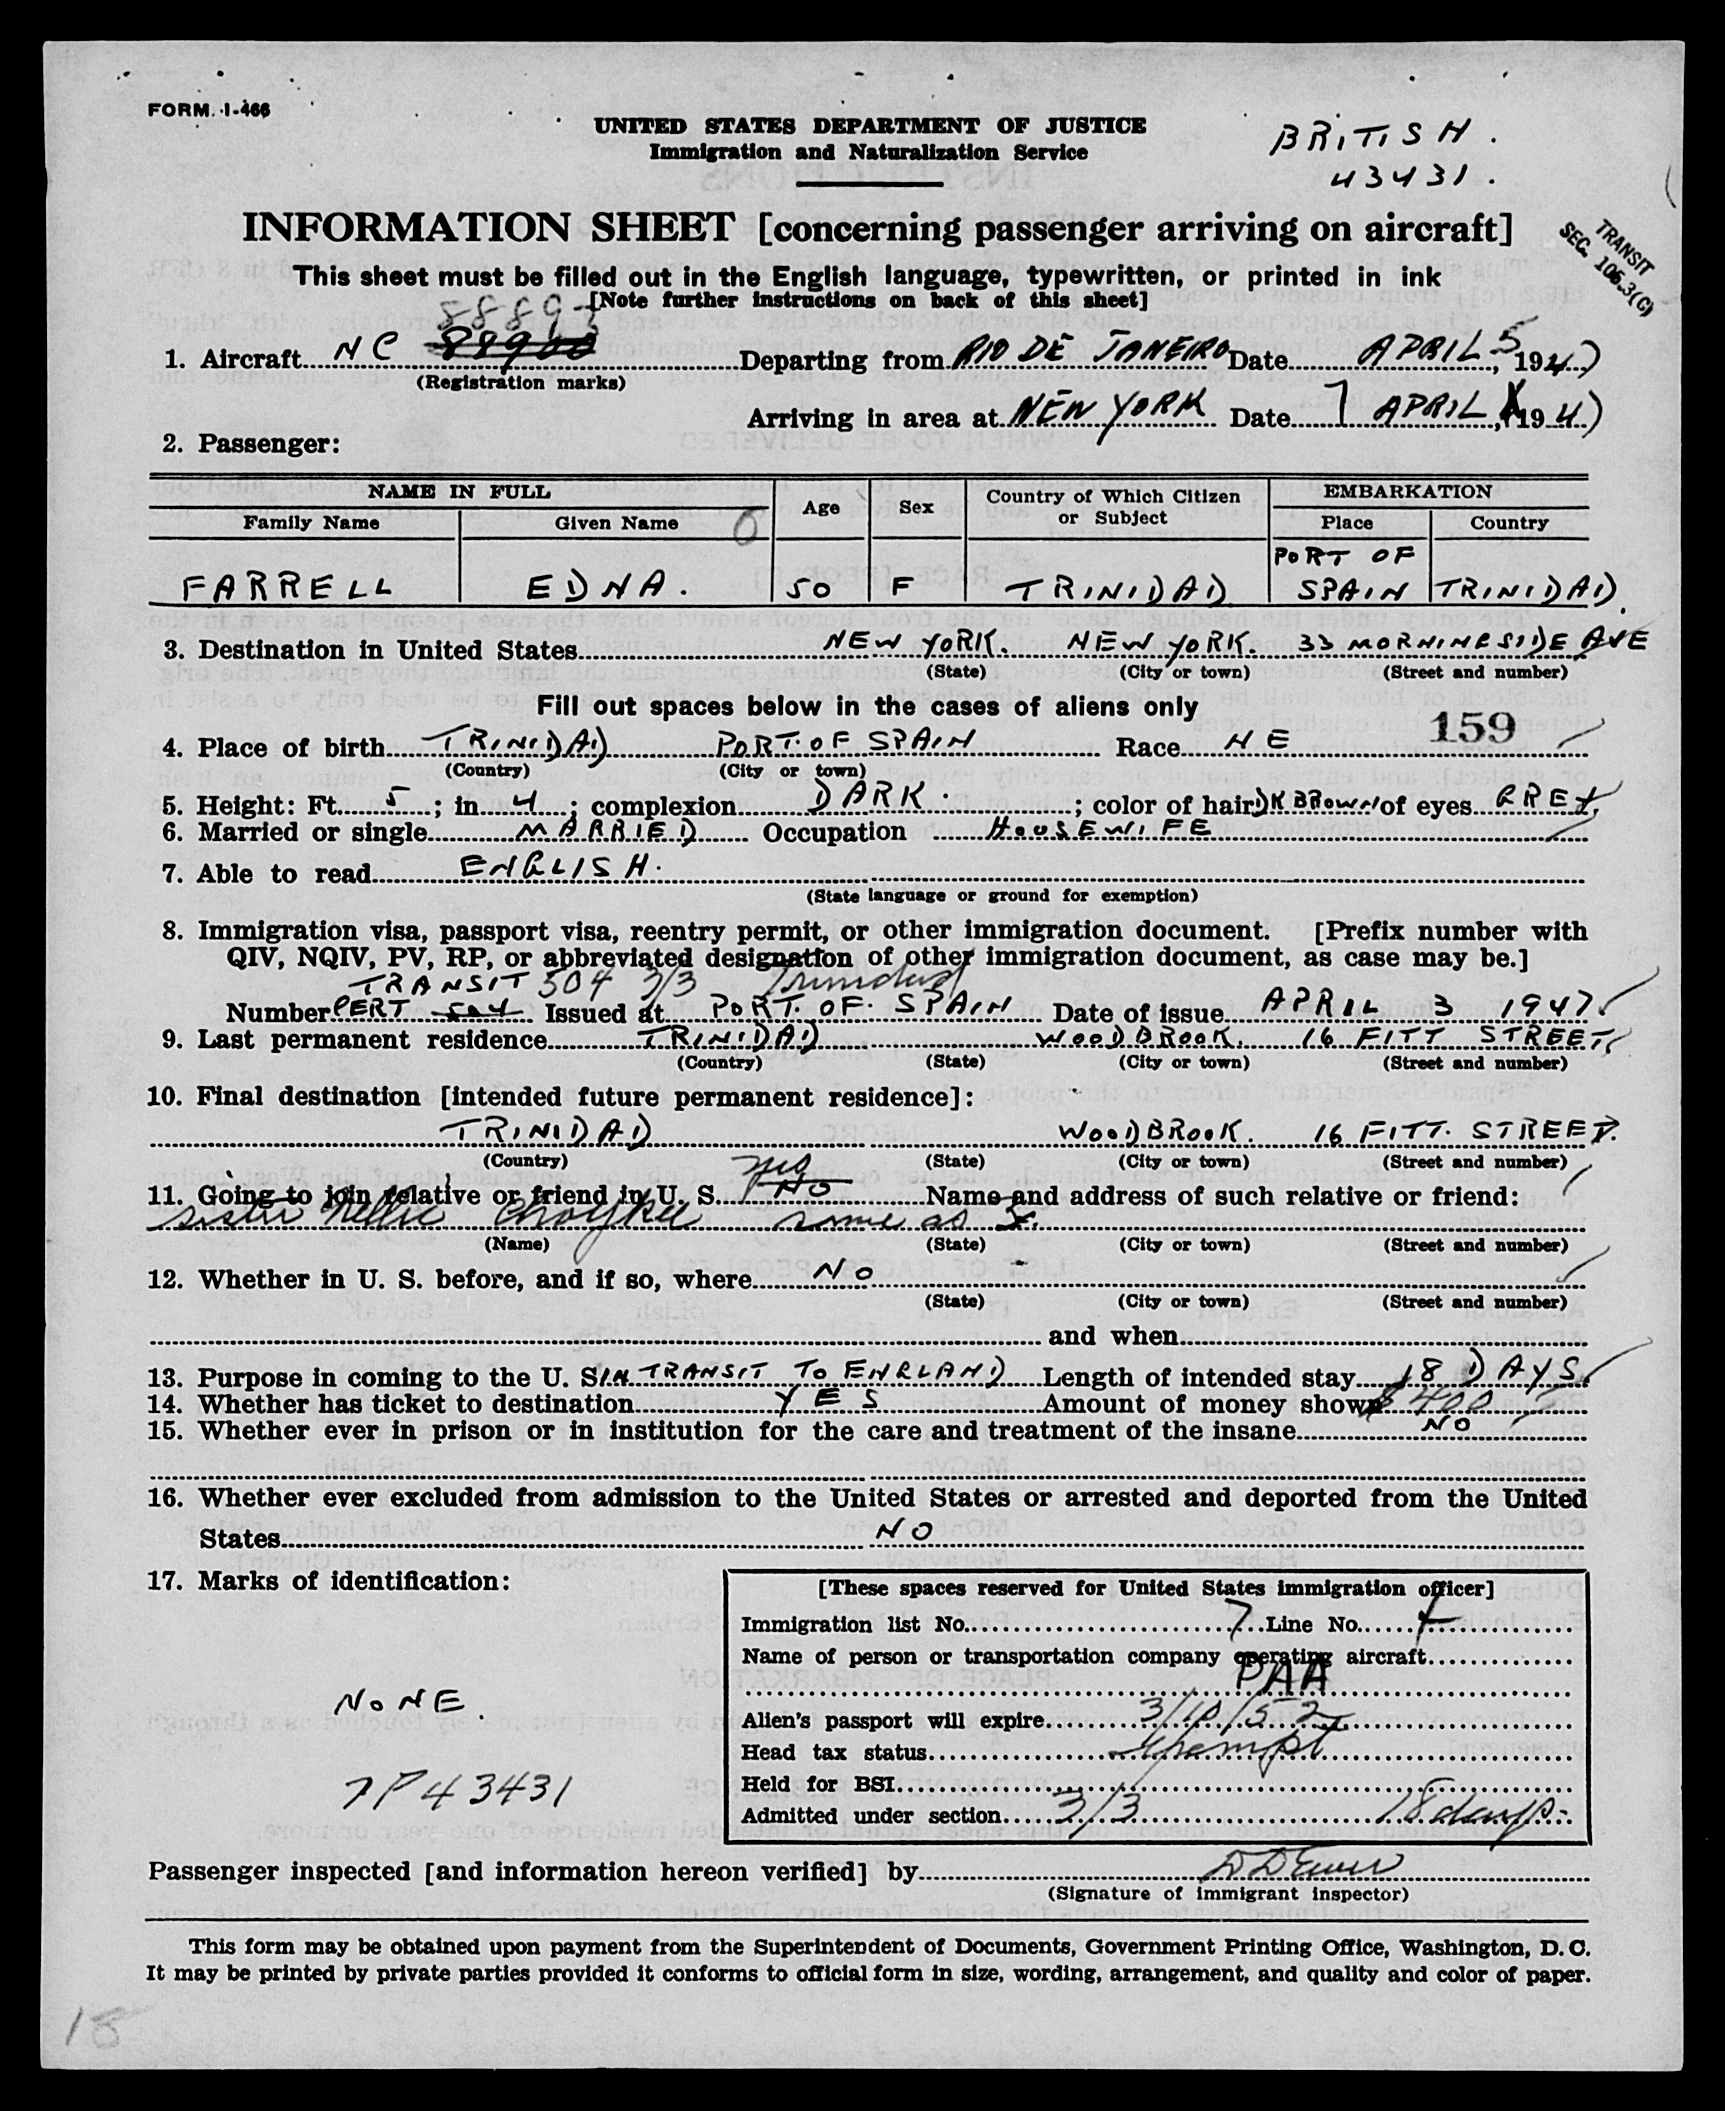 FORM. I-466
UNITED STATES DEPARTMENT OF JUSTICE
Immigration and Naturalization Service
BRITISH.
43431.
INFORMATION SHEET [concerning passenger arriving on aircraft]
TRANSIT
SEC. 106.3(C)
This sheet must be filled out in the English language, typewritten, or printed in ink
[Note further instructions on back of this sheet]
1. Aircraft NC 88900 Departing from RIO DE JANEIRO Date APRIL 5, 1947
(Registration marks)
Arriving in area at NEW YORK Date 7 APRIL, 1947
2. Passenger:
NAME IN FULL Age Sex Country of Which Citizen or Subject EMBARKATION
Family Name Given Name Place Country
FARRELL EDNA. 50 F TRINIDAD PORT OF SPAIN TRINIDAD.
3. Destination in United States NEW YORK. NEW YORK. 33 MORNINGSIDE AVE
(State) (City or town) (Street and number)
Fill out spaces below in the cases of aliens only
159
4. Place of birth TRINIDAD PORT. OF SPAIN Race NE
(Country) (City or town)
5. Height: Ft. 5; in. 4; complexion DARK. ; color of hair DK BROWN of eyes GREY
6. Married or single MARRIED Occupation HOUSEWIFE
7. Able to read ENGLISH.
(State language or ground for exemption)
8. Immigration visa, passport visa, reentry permit, or other immigration document. [Prefix number with
QIV, NQIV, PV, RP, or abbreviated designation of other immigration document, as case may be.]
TRANSIT 504 3/3 Trinidad
Number CERT 504 Issued at PORT. OF. SPAIN Date of issue APRIL 3 1947
9. Last permanent residence TRINIDAD WOODBROOK. 16 FITT STREET
(Country) (State) (City or town) (Street and number)
10. Final destination [intended future permanent residence]:
TRINIDAD WOODBROOK. 16 FITT. STREET.
(Country) (State) (City or town) (Street and number)
yes
11. Going to join relative or friend in U. S. NO Name and address of such relative or friend:
sister Nellie same as 3.
(Name) (State) (City or town) (Street and number)
12. Whether in U. S. before, and if so, where NO
(State) (City or town) (Street and number)
and when
13. Purpose in coming to the U. S. IN TRANSIT TO ENGLAND Length of intended stay 18 DAYS.
14. Whether has ticket to destination YES Amount of money shown $400
15. Whether ever in prison or in institution for the care and treatment of the insane NO
16. Whether ever excluded from admission to the United States or arrested and deported from the United
States NO
17. Marks of identification:
NONE.
43431
[These spaces reserved for United States immigration officer]
Immigration list No. 7 Line No. 4
Name of person or transportation company operating aircraft
PAA
Alien's passport will expire 3/10/52
Head tax status Exempt
Held for BSI
Admitted under section 3/3 18 days.
Passenger inspected [and information hereon verified] by
(Signature of immigrant inspector)
This form may be obtained upon payment from the Superintendent of Documents, Government Printing Office, Washington, D. C.
It may be printed by private parties provided it conforms to official form in size, wording, arrangement, and quality and color of paper.
18